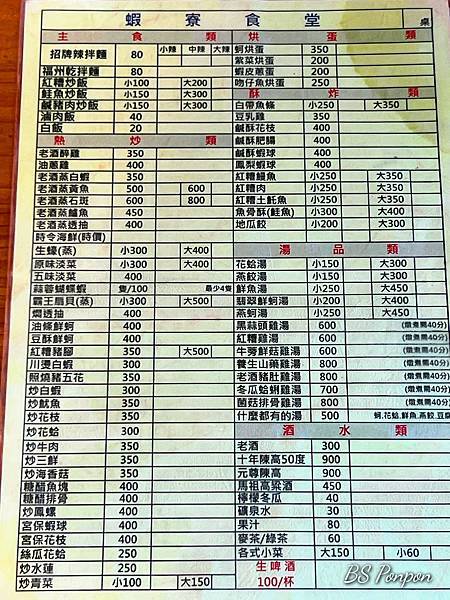 蝦寮食堂 桌
主食類
招牌辣拌麵 80 小辣 中辣 大辣
福州乾拌麵 80
紅糟炒飯 小100 大200
鮭魚炒飯 小150 大300
鹹豬肉炒飯 小150 大300
滷肉飯 40
白飯 20
熱炒類
老酒醉雞 350
油蔥雞 400
老酒蒸白蝦 350
老酒蒸黃魚 500 600
老酒蒸石斑 600 800
老酒蒸鱸魚 450
老酒蒸透抽 400
時令海鮮(時價)
生蠔(蒸) 小300 大400
原味淡菜 小300 大400
五味淡菜 400
蒜蓉蝴蝶蝦 隻/100 最少4隻
霸王扇貝(蒸) 小300 大500
燜透抽 400
油條鮮蚵 400
豆酥鮮蚵 400
紅糟豬腳 350 大500
川燙白蝦 350
照燒豬五花 350
炒白蝦 350
炒魷魚 350
炒花枝 350
炒花蛤 300
炒牛肉 350
炒三鮮 350
炒海香菇 350
糖醋魚塊 400
糖醋排骨 400
炒鳳螺 400
宮保蝦球 400
宮保花枝 400
絲瓜花蛤 250
炒水蓮 250
炒青菜 小100 大150
烘蛋類
蚵烘蛋 350
紫菜烘蛋 200
蝦皮蔥蛋 200
吻仔魚烘蛋 250
酥炸類
白帶魚條 小250 大350
豆乳雞 350
鹹酥花枝 350
鹹酥肥腸 400
鹹酥蝦球 400
鳳梨蝦球 400
紅糟鰻魚 小250 大350
紅糟肉 小250 大350
紅糟土魠魚 小250 大350
魚骨酥(鮭魚) 小300 大400
地瓜餃 小200 大300
湯品類
花蛤湯 小150 大300
燕餃湯 小150 大300
鮮魚湯 小250 大450
翡翠鮮蚵湯 小200 大400
燕蚵湯 小250 大450
黑蒜頭雞湯 600 (燉煮需40分)
紅糟雞湯 600
牛蒡鮮菇雞湯 600 (燉煮需40分)
養生山藥雞湯 600 (燉煮需40分)
老酒豬肚雞湯 800 (燉煮需40分)
冬瓜蛤蜊雞湯 700 (燉煮需40分)
菌菇排骨雞湯 800 (燉煮需40分)
什麼都有的湯 500 蚵,花蛤,鮮魚,燕餃,豆腐
酒水類
老酒 300
十年陳高50度 900
元尊陳高 900
馬祖高粱酒 450
檸檬冬瓜 40
礦泉水 30
果汁 80
麥茶/綠茶 60
各式小菜 大150 小60
生啤酒
100/杯
BS Ponpon